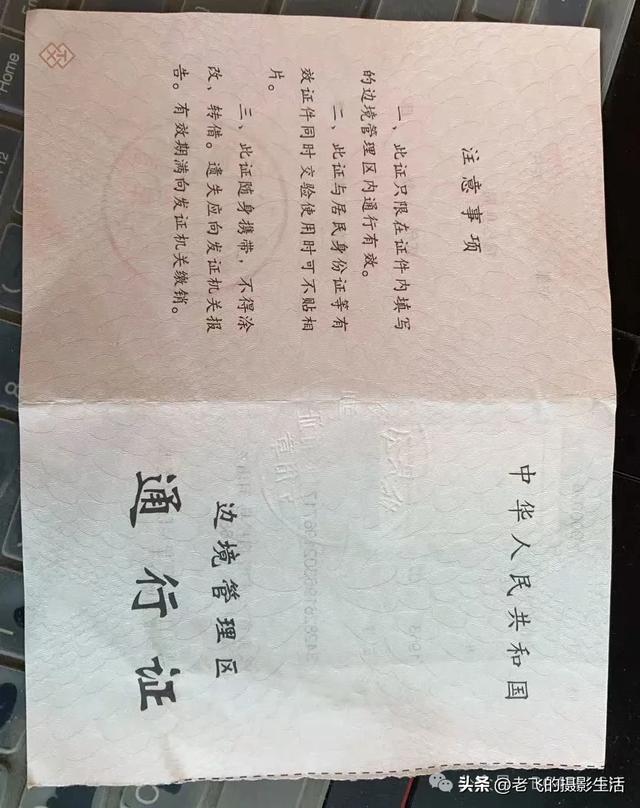 注意事项
一、此证只限在证件内填写
的边境管理区内通行有效。
二、此证与居民身份证等有
效证件同时交验使用时可不贴相
片。
三、此证随身携带，不得涂
改、转借。遗失应向发证机关报
告。有效期满向发证机关缴销。
中华人民共和国
边境管理区
通行证
Home
头条 @老飞的摄影生活